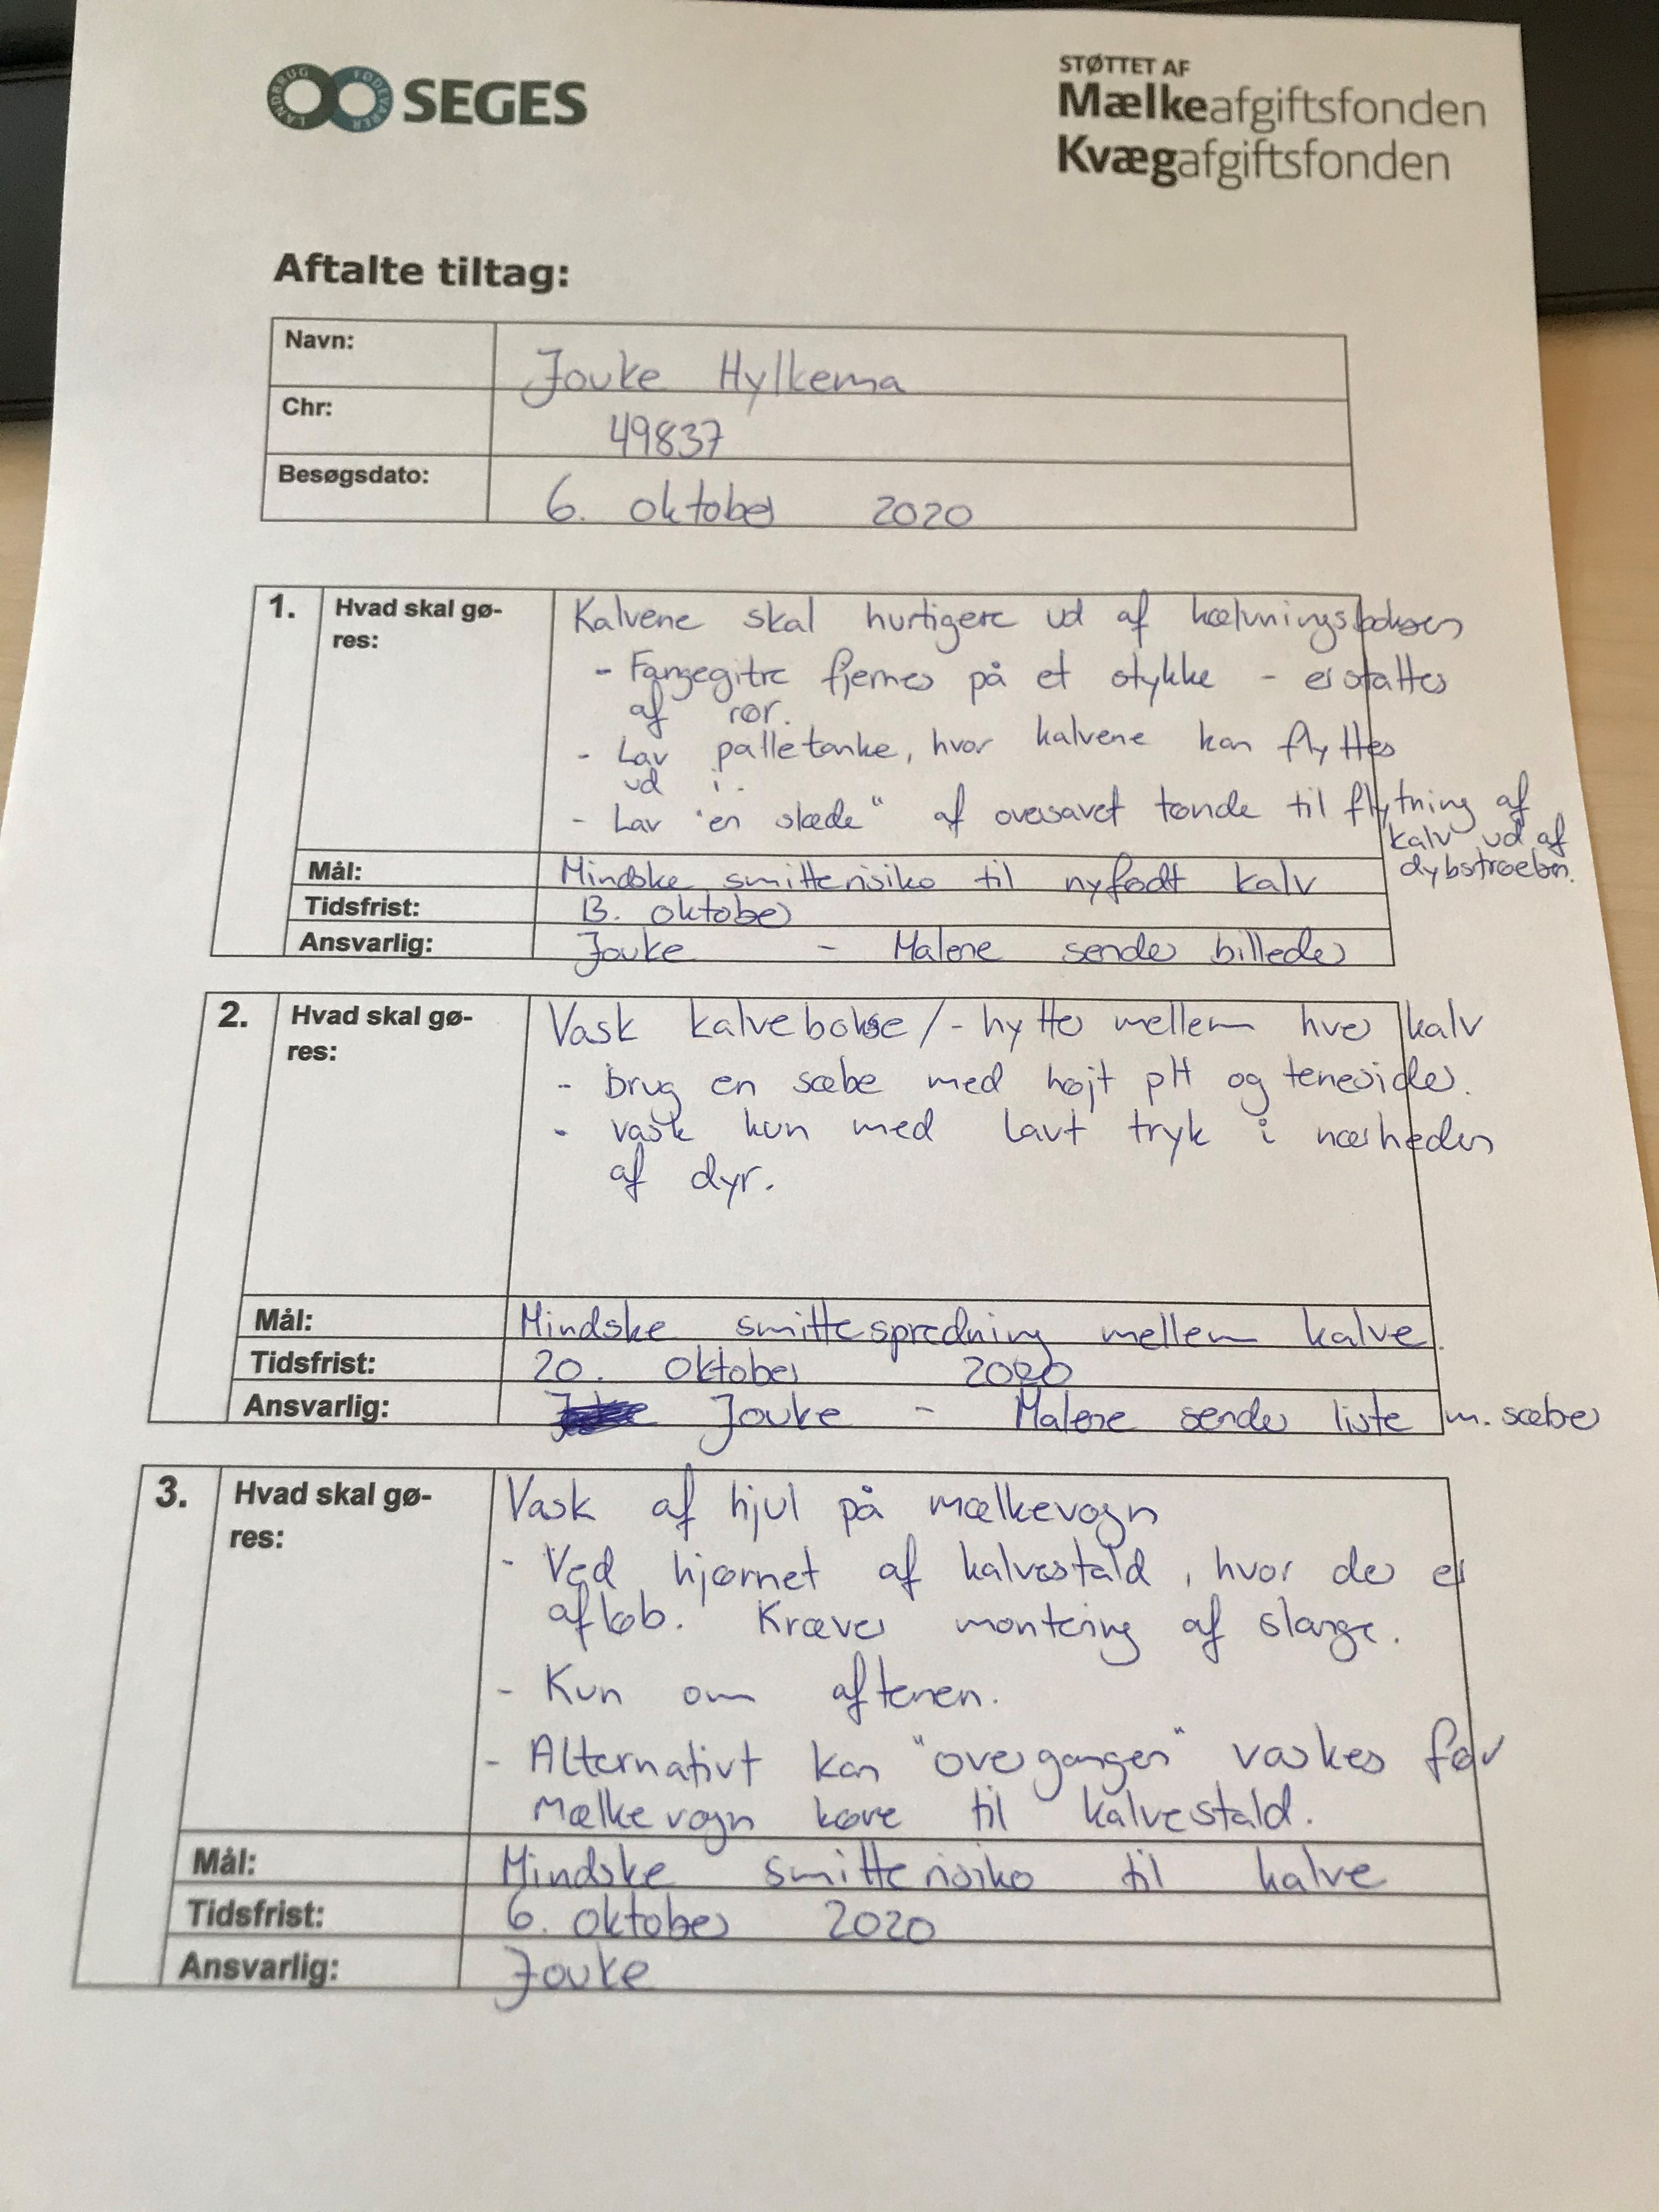 LANDBRUG FØDEVARER
SEGES
STØTTET AF
Mælkeafgiftsfonden
Kvægafgiftsfonden
Aftalte tiltag:
Navn: Jouke Hylkema
Chr: 49837
Besøgsdato: 6. oktober 2020
1. Hvad skal gø-
res:
Kalvene skal hurtigere ud af kælvningsboksen
- Fangegitre fjernes på et stykke - erstattes
af rør.
- Lav palletanke, hvor kalvene kan flyttes
ud i.
- Lav "en slæde" af oversavet tønde til flytning af
kalv ud af
dybstrøelsen.
Mål: Mindske smitterisiko til nyfødt kalv
Tidsfrist: 13. oktober
Ansvarlig: Jouke - Malene sender billeder
2. Hvad skal gø-
res:
Vask kalvebokse/-hytter mellem hver kalv
- Brug en sæbe med højt pH og tenesider.
- vask kun med lavt tryk i nærheden
af dyr.
Mål: Mindske smittespredning mellem kalve.
Tidsfrist: 20. oktober 2020
Ansvarlig: Jouke - Malene sender liste m. sæber
3. Hvad skal gø-
res:
Vask af hjul på mælkevogn
- Ved hjørnet af kalvestald, hvor der er
afløb. Kræver montering af slange.
- Kun om aftenen.
- Alternativt kan "overgangen" vaskes før
mælkevogn køre til kalvestald.
Mål: Mindske smitterisiko til kalve
Tidsfrist: 6. oktober 2020
Ansvarlig: Jouke